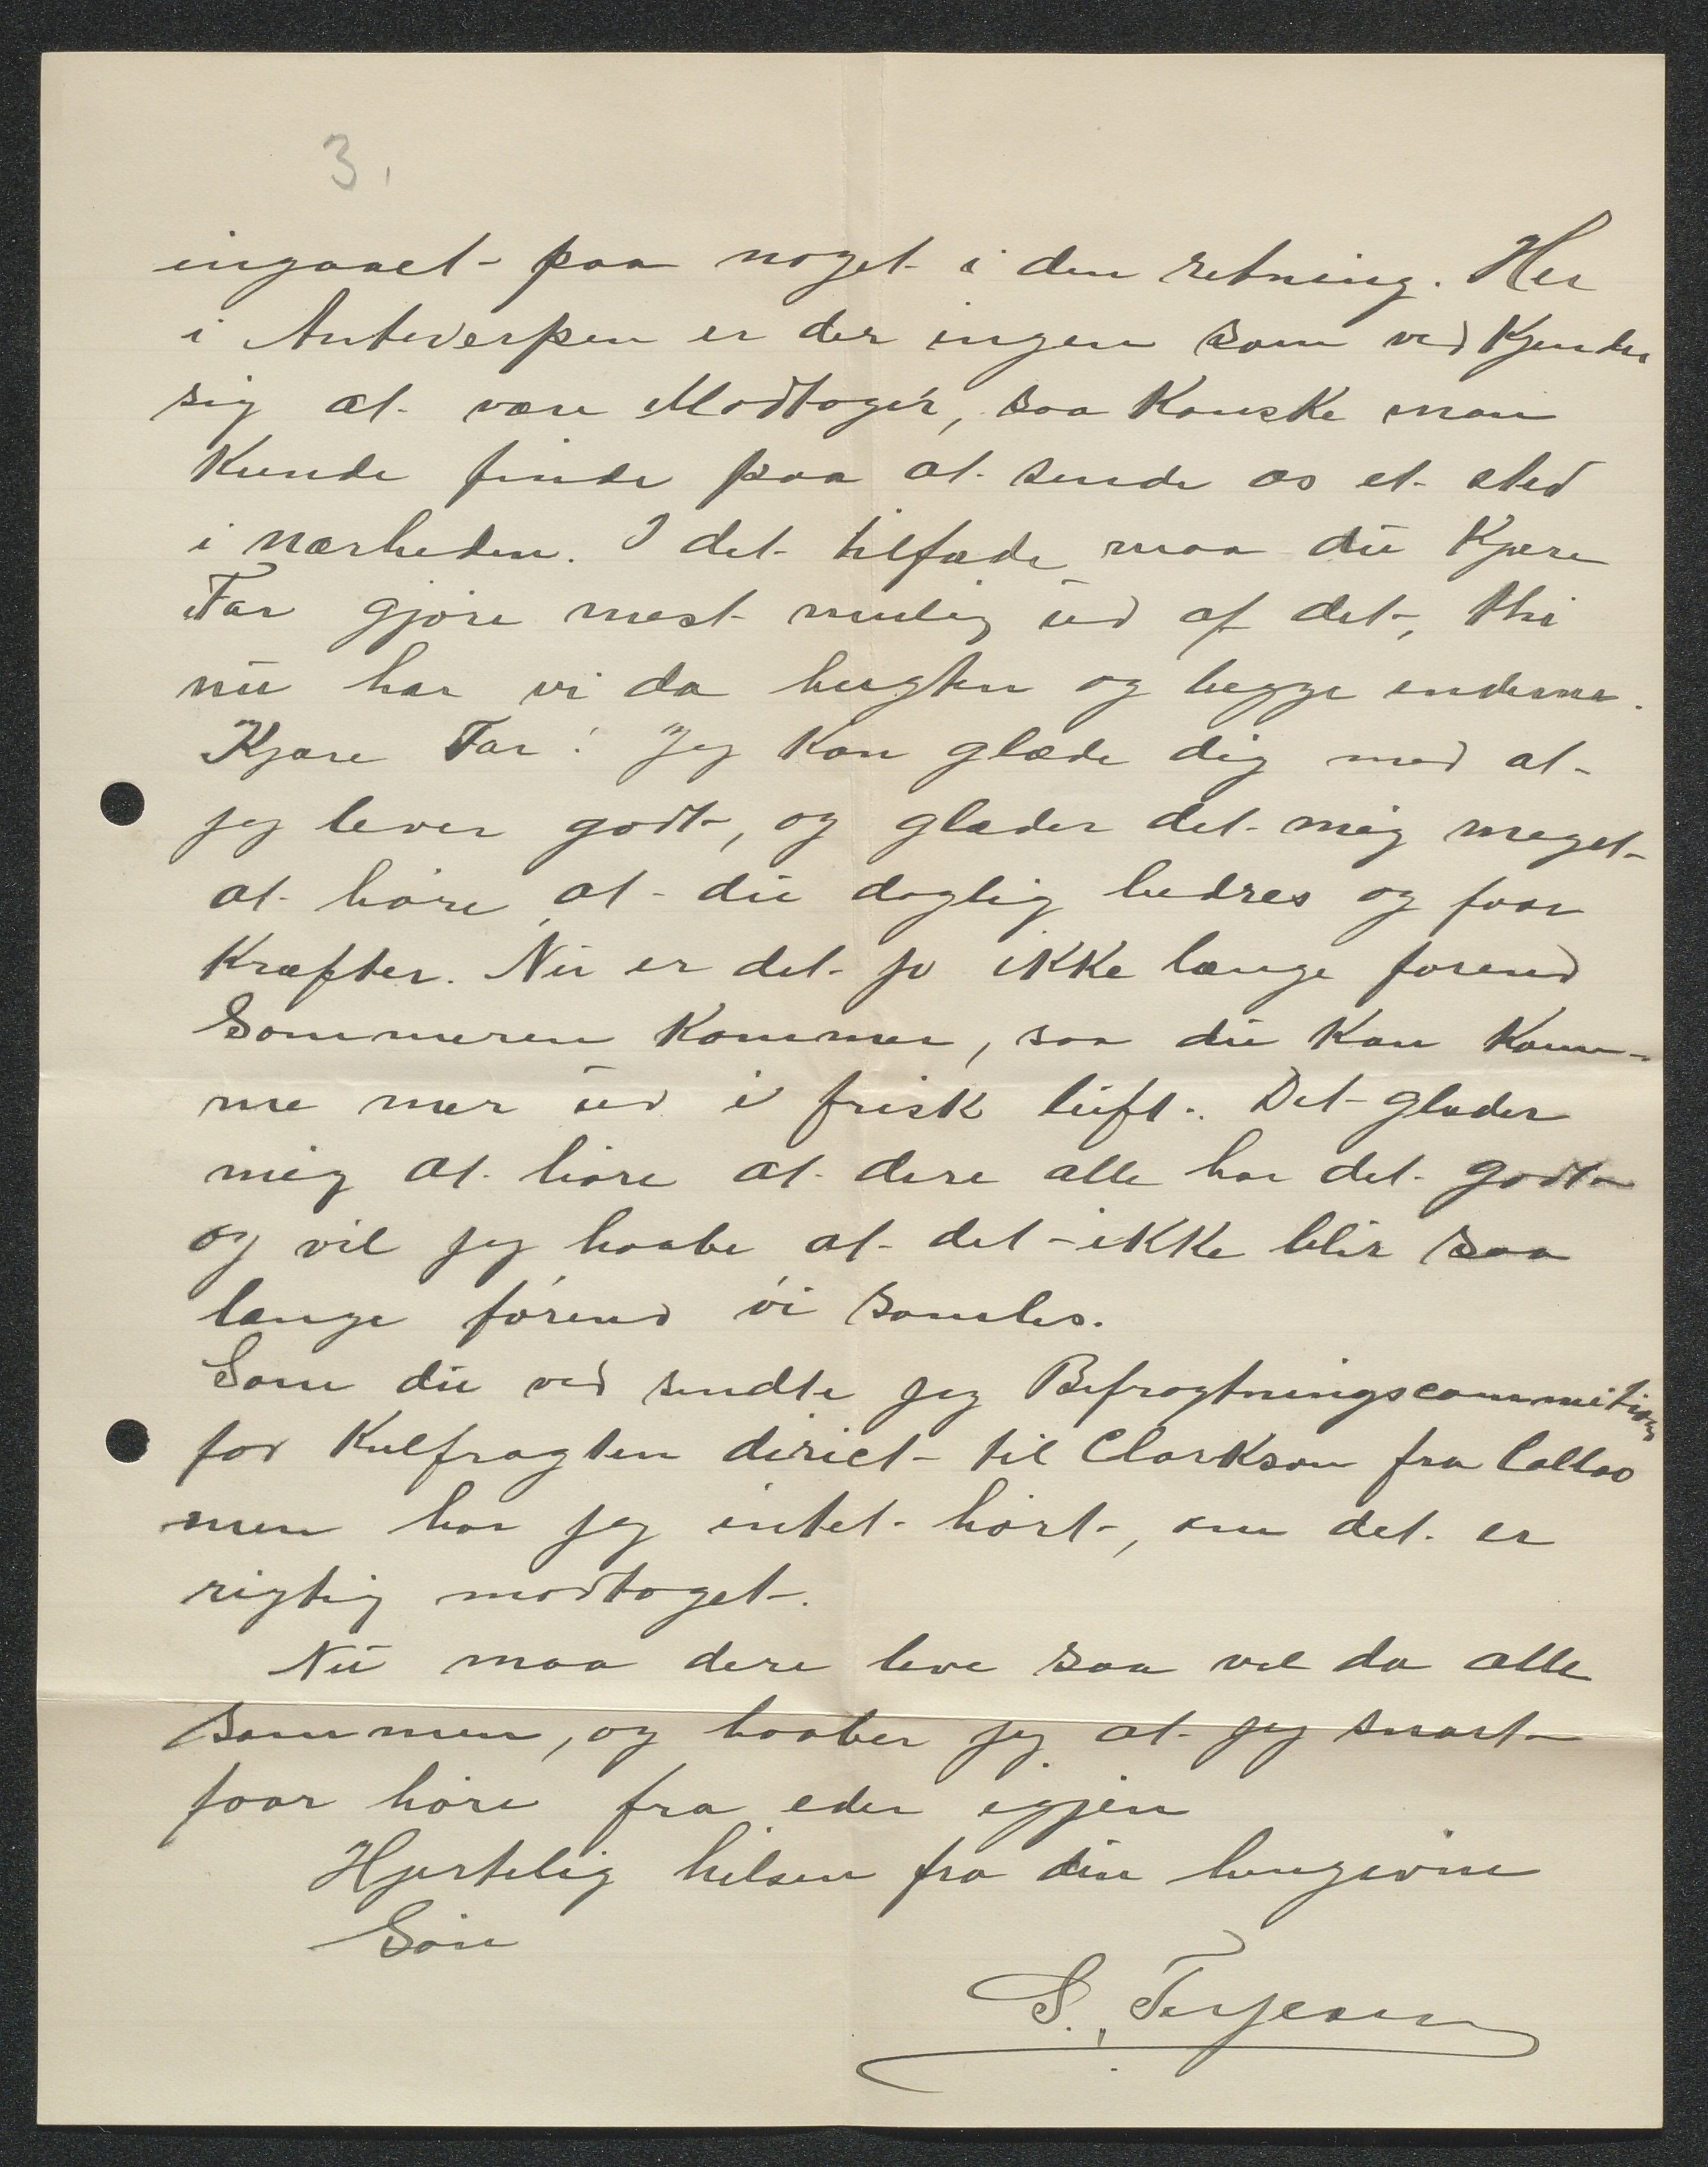 3.
ingaaet paa noget i den retning. Her
i Antwerpen er der ingen som ved Kjender
sig at være Modtager, saa Kanske man
Kunde finde paa at sende os et sted
i nærheden. I det tilfæde maa du Kjære
Far gjøre mest mulig ud af det, thi
nu har vi da bugten og begge enderne.
Kjære Far! Jeg Kan glæde dig med at
jeg lever godt, og glæder det mig meget
at høre at du daglig bedres og faar
Kræfter. Nu er det jo ikke længe forend
Sommeren Kommer, saa du Kan Kom-
me mer ud i frisk luft. Det glæder
mig at høre at dere alle har det godt
og vil jeg haabe at det ikke blir saa
længe førend vi samles.
Som du ved sendte jeg Befragtningscommitions
for Kulfragten diriet til Clarkson fra Callao
men har jeg intet hørt, om det er
rigtig modtaget.
Nu maa dere leve saa vel da alle
sammen, og haaber jeg at jeg snart
faar høre fra eder igjen
Hjertelig hilsen fra din hengivne
Søn
S. Terjesen